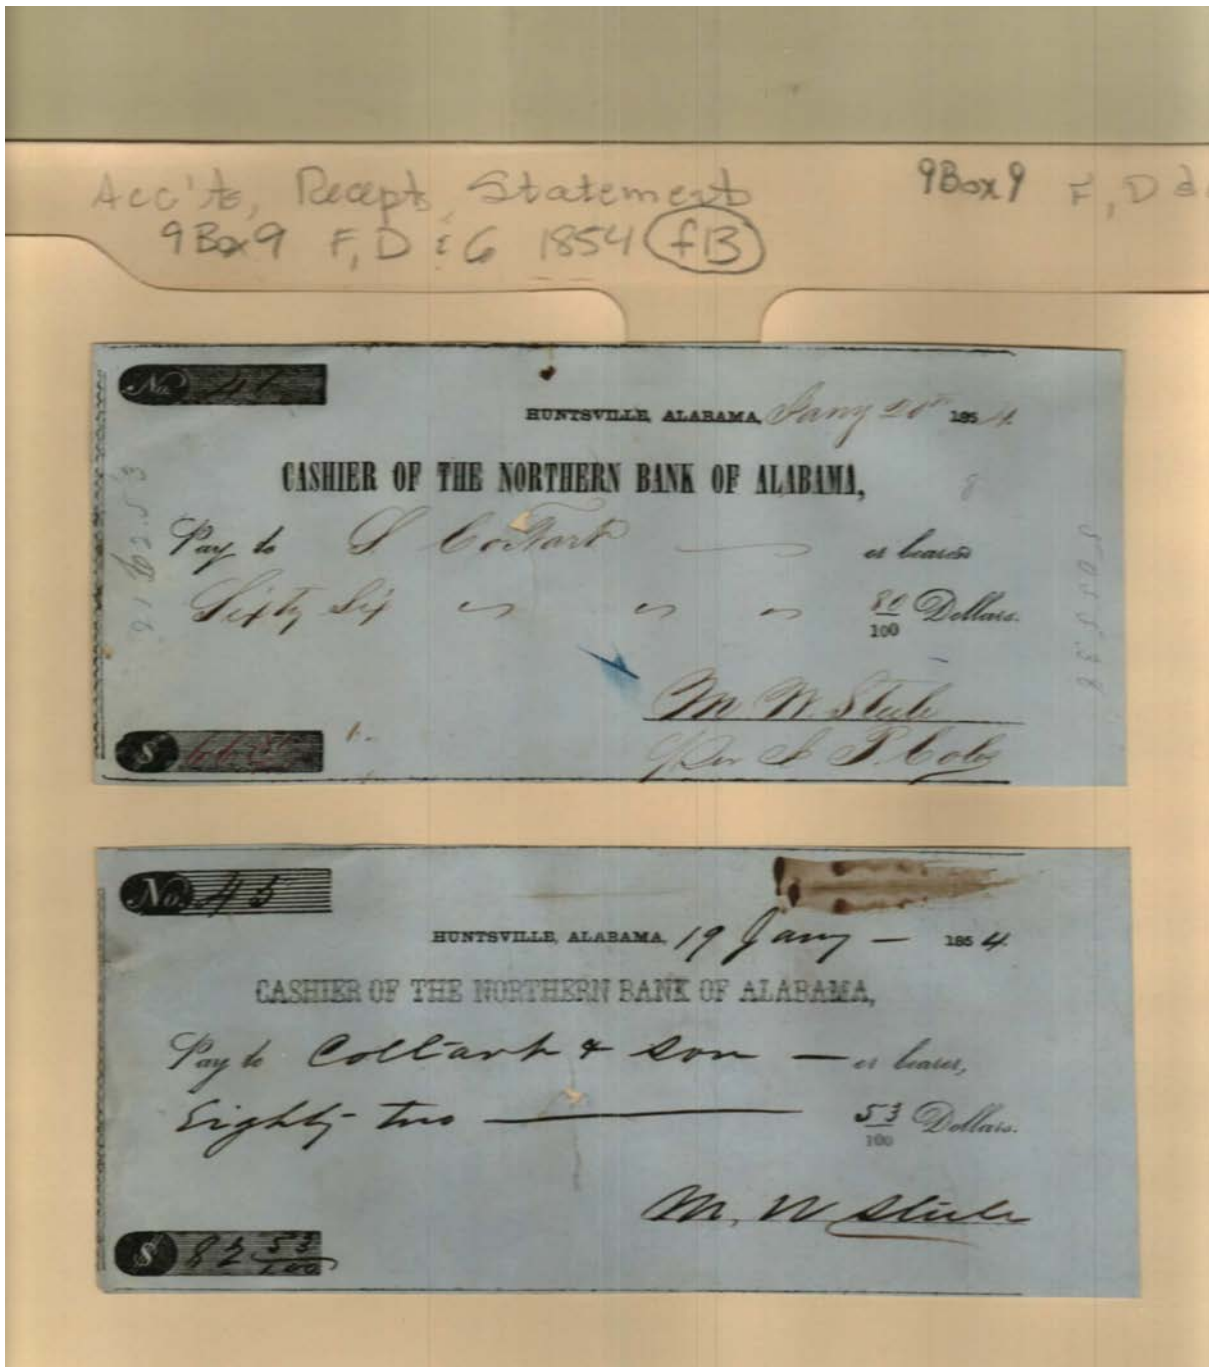 Acc'ts, Recepts, Statements
9Box9 F, D & G 1854 fB
9Box9 F, D &
No. 47
HUNTSVILLE, ALABAMA, Jany 20th 1854.
CASHIER OF THE NORTHERN BANK OF ALABAMA,
Pay to S Cottart or bearer
Sixty Six 80/100 Dollars.
M W Steele
Per S P. Coby
$ 66
No. 45
HUNTSVILLE, ALABAMA, 19 Jany — 1854.
CASHIER OF THE NORTHERN BANK OF ALABAMA,
Pay to Coltart & Son — or bearer,
Eighty two 53/100 Dollars.
M. W Steele
$ 82 53/100